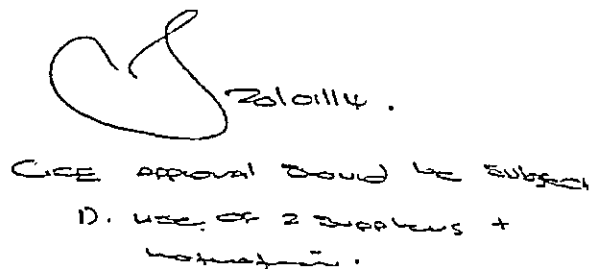 20/01/14.
CICE approval should be subject
D. use of 2 suppliers +